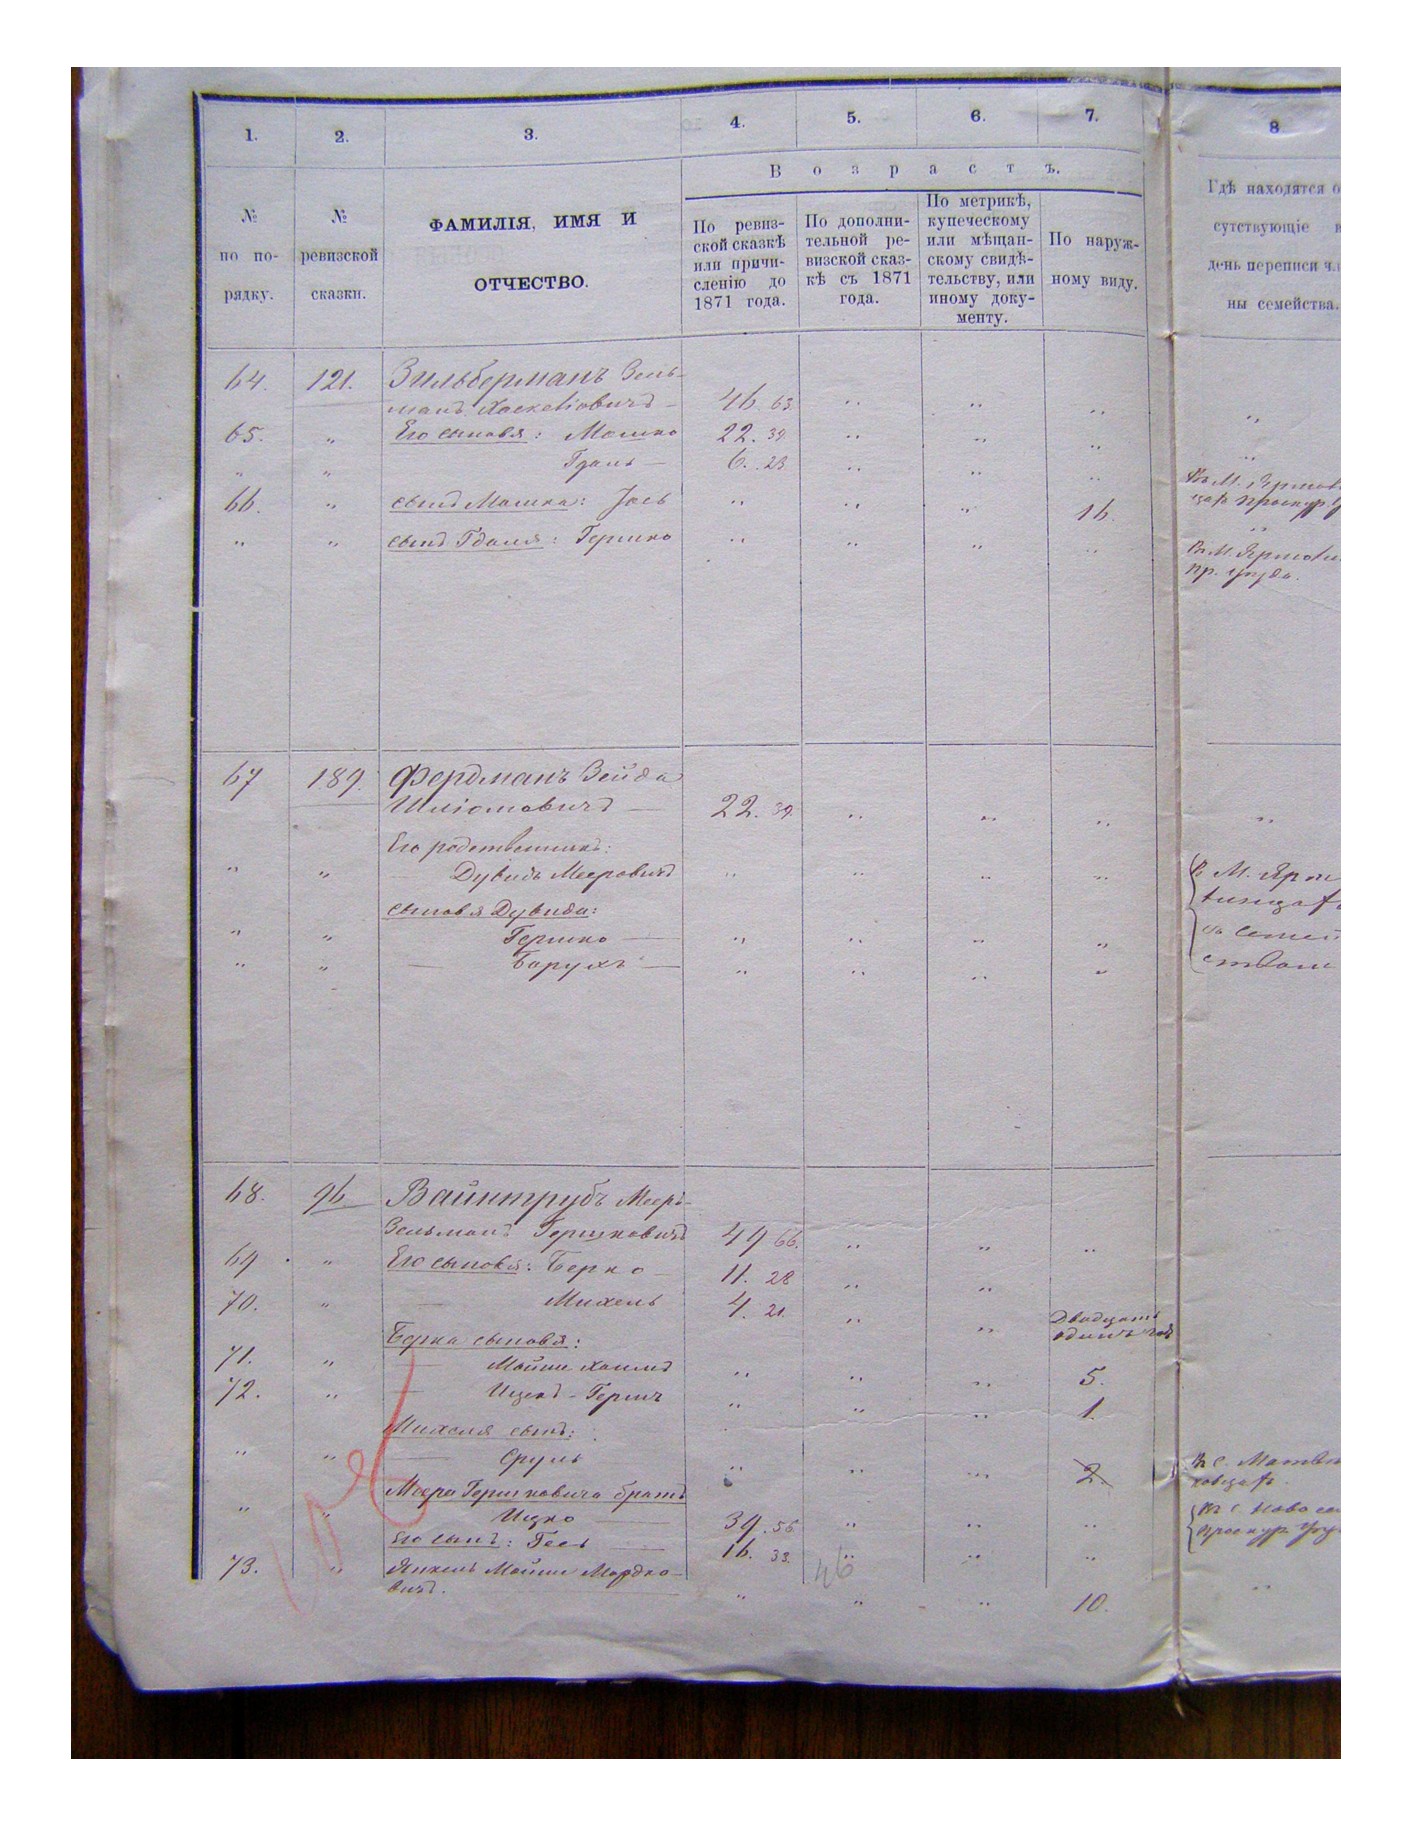 1. 2. 3. 4. 5. 6. 7. 8
В о з р а с т ъ.
№ по по- рядку.
№ ревизской сказки.
ФАМИЛІЯ, ИМЯ И
ОТЧЕСТВО.
По ревиз-
ской сказкѣ
или причи-
сленію до
1871 года.
По дополни-
тельной ре-
визской сказ-
кѣ съ 1871
года.
По метрикѣ,
купеческому
или мѣщан-
скому свидѣ-
тельству, или
иному доку-
менту.
По наруж-
ному виду.
Гдѣ находятся о
сутствующіе в
день переписи чл
ны семейства.
64. 121. Зильберманъ Зель-
манъ Хаскеліовичъ 46. 63. „ „ „ „
65. „ Его сыновя: Мошко 22. 39. „ „ „ „
„ „ Гдаль 6. 23 „ „ „ Въ М. Ярмол
66. „ сынъ Мошка: Іось „ „ „ 16. „
„ „ сынъ Гдаля: Гершко „ „ „ „ Въ М. Ярмоли
пр. уѣзда.
67 189. Фердманъ Зейда
Шліомовичъ 22. 39. „ „ „ „
Его родственникъ:
„ „ Дувидъ Мееровичъ „ „ „ „ В М. Ярмо
сыновя Дувида:
„ „ Гершко „ „ „ „ съ семей
„ „ Борухъ „ „ „ „ ствомъ
68. 96. Вайнтрубъ Мееръ-
Зельманъ Гершковичъ 49 66. „ „ „
69 „ Его сыновя: Берко 11. 28 „ „
70. „ Михель 4. 21. „ „ Двадцать
одинъ годъ
Берка сыновя:
71. „ Мойше Хаимъ „ „ „ 5.
72. „ Ицекъ-Гершъ „ „ „ 1.
Михеля сынъ:
„ „ Сруль „ „ „ 2. Въ с. Матве
ковцахъ.
Меера Гершковича братъ
„ „ Ицко 39. 56 „ „ „ Въ с. Ново се
Его сынъ: Гесь 16. 33. „ „ „ Проскур. уѣз
73. „ Янкель Мойше Мордко-
вичъ. „ „ „ 10. „
46